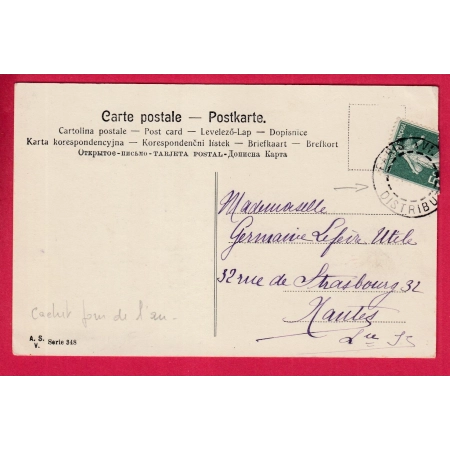 Carte postale — Postkarte.
Cartolina postale — Post card — Levelező-Lap — Dopisnice
Karta korespondencyjna — Korespondenční lístek — Briefkaart — Brefkort
Открытое-письмо-TARJETA POSTAL-Дописна Карта
DISTRIBU
Mademoiselle
Germaine Lefèvre Utile
32 rue de Strasbourg 32
Nantes
Cachet jour de l'an.
A. S.
V. Serie 348